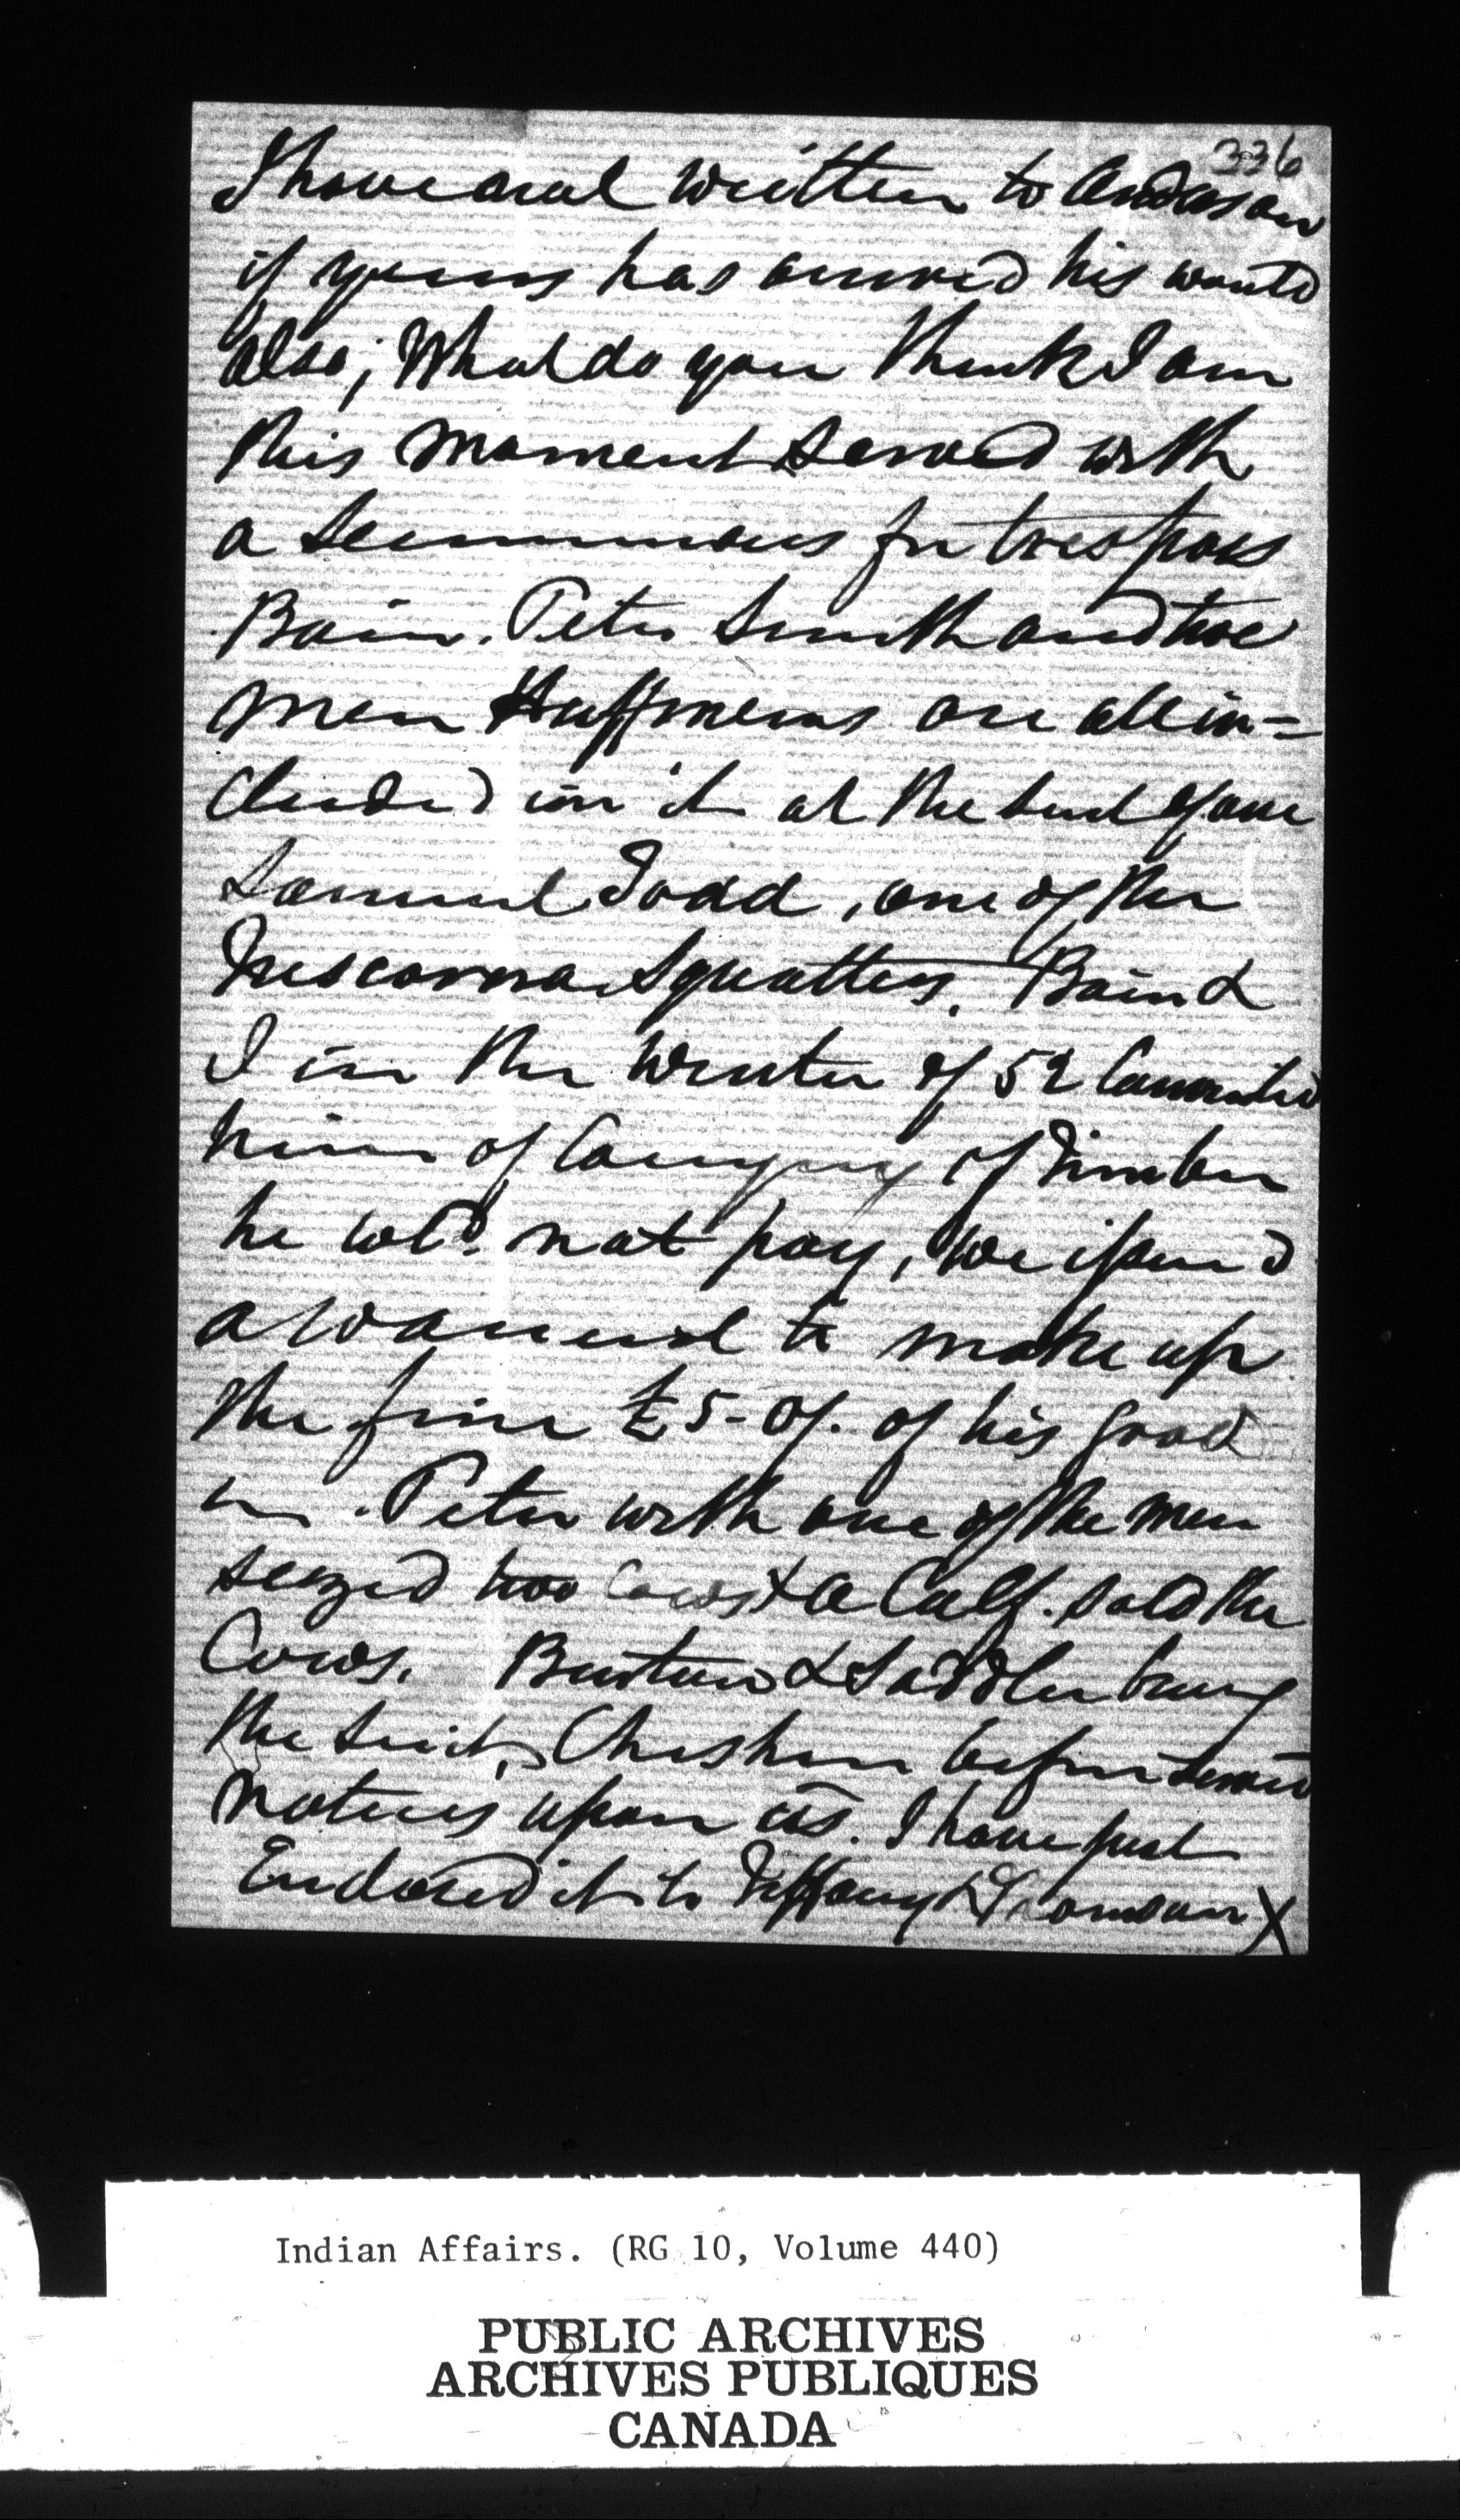 336
I have and written to Anderson
if yours has arrived his would
also; What do you think I am
this moment served with
a Summons for trespass
Bain. Peter Smith and two
men Huffmans are all in=
cluded in it at the suit of one
Samuel Todd, one of the
Tuscarora Squatters. Bain &
I in the Winter of 52 Convicted
him of Carrying off Timber
he wld. not pay, we issued
a warrant to make up
the fine £5-0/. of his good
Peter with one of the men
seized two Cows & a Calf. sold the
Cows. Burton & Sadlier bring
the Suit, Chisholm before served
notices upon us. I have just
Enclosed it to Tiffany &
X
Indian Affairs. (RG 10, Volume 440)
PUBLIC ARCHIVES
ARCHIVES PUBLIQUES
CANADA